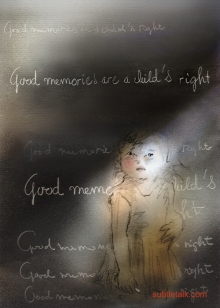 Good memories are a child's right
Good memories are a child's right
Good memorie right
Good meme ild's
ht
Good memo right
Good memo right
Good memo right
autietalk.com